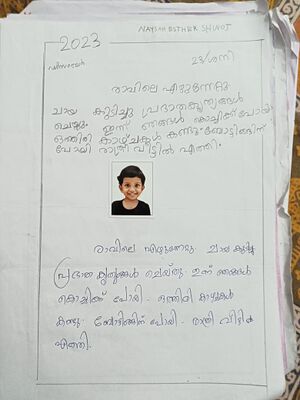 NAYSAH ESTHER SHINOJ
2023
ഡിസംബർ
23/ശനി
രാവിലെ എഴുന്നേറ്റു
ചായ കുടിച്ചു പ്രഭാതകൃത്യങ്ങൾ
ചെയ്തു. ഇന്ന് ഞങ്ങൾ കൊച്ചിക്ക് പോയി.
ഒത്തിരി കാഴ്ചകൾ കണ്ടു. ബോട്ടിങ്ങിന്
പോയി രാത്രി വീട്ടിൽ എത്തി.
രാവിലെ എഴുന്നേറ്റു ചായ കുടിച്ചു
പ്രഭാത കൃത്യങ്ങൾ ചെയ്തു ഇന്ന് ഞങ്ങൾ
കൊച്ചിക്ക് പോയി. ഒത്തിരി കാഴ്ചകൾ
കണ്ടു. ബോട്ടിങ്ങിന് പോയി. രാത്രി വീട്ടിൽ
എത്തി.